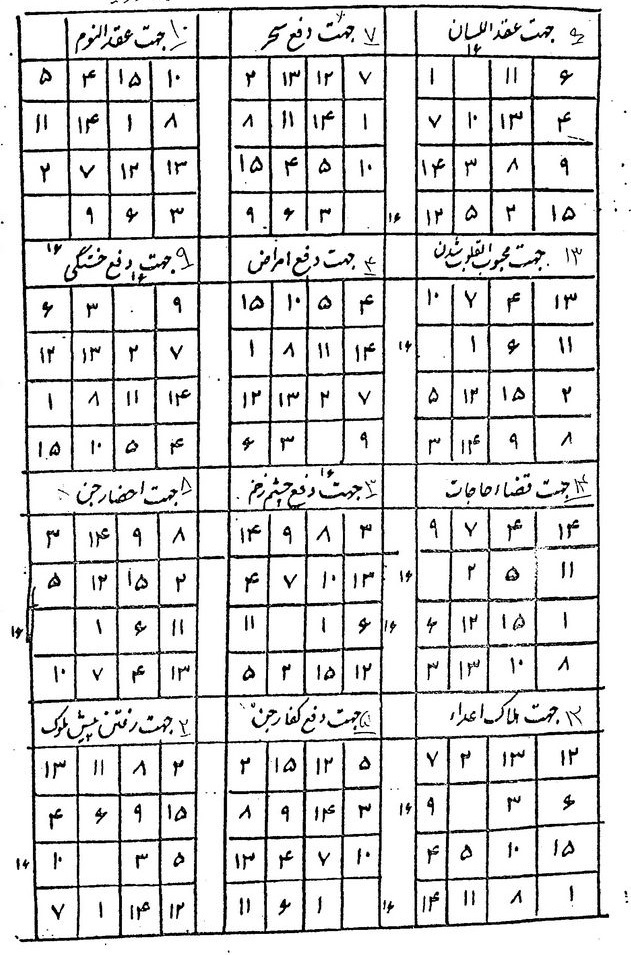 ۶ جهت عقد اللسان
۱۶
۶ ۱۱ ۱
۴ ۱۳ ۱۰ ۷
۹ ۸ ۳ ۱۴
۱۵ ۲ ۵ ۱۲
۷ جهت دفع سحر
۷ ۱۲ ۱۳ ۲
۱ ۱۴ ۱۱ ۸
۱۰ ۵ ۴ ۱۵
۱۶ ۳ ۶ ۹
۱۰ جهت عقد النوم
۱۰ ۱۵ ۴ ۵
۸ ۱ ۱۴ ۱۱
۱۳ ۱۲ ۷ ۲
۳ ۶ ۹
۱۶
۱۳ جهت محبوب القلوب شدن
۱۳ ۴ ۷ ۱۰
۱۱ ۶ ۱ ۱۶
۲ ۱۵ ۱۲ ۵
۸ ۹ ۱۴ ۳
۴ جهت دفع امراض
۴ ۵ ۱۰ ۱۵
۱۴ ۱۱ ۸ ۱
۷ ۲ ۱۳ ۱۲
۹ ۳ ۶
۹ جهت دفع خستگی
۱۶
۹ ۳ ۶
۷ ۲ ۱۳ ۱۲
۱۴ ۱۱ ۸ ۱
۴ ۵ ۱۰ ۱۵
۱۴ جهت قضاء حاجات
۱۴ ۴ ۷ ۹
۱۱ ۵ ۲ ۱۶
۱ ۱۵ ۱۲ ۶
۸ ۱۰ ۱۳ ۳
۳ جهت دفع چشم زخم
۱۶
۳ ۸ ۹ ۱۴
۱۳ ۱۰ ۷ ۴
۱۶ ۶ ۱ ۱۱
۱۲ ۱۵ ۲ ۵
۸ جهت احضار جن
۸ ۹ ۱۴ ۳
۲ ۱۵ ۱۲ ۵
۱۱ ۶ ۱ ۱۶
۱۳ ۴ ۷ ۱۰
۱۲ جهت هلاک اعداء
۱۲ ۱۳ ۲ ۷
۶ ۳ ۹ ۱۶
۱۵ ۱۰ ۵ ۴
۱ ۸ ۱۱ ۱۴
۵ جهت دفع کفار جن
۵ ۱۲ ۱۵ ۲
۳ ۱۴ ۹ ۸
۱۰ ۷ ۴ ۱۳
۱۶ ۱ ۶ ۱۱
۲ جهت رفتن پیش ملوک
۲ ۸ ۱۱ ۱۳
۱۵ ۹ ۶ ۴
۵ ۳ ۱۰ ۱۶
۱۲ ۱۴ ۱ ۷